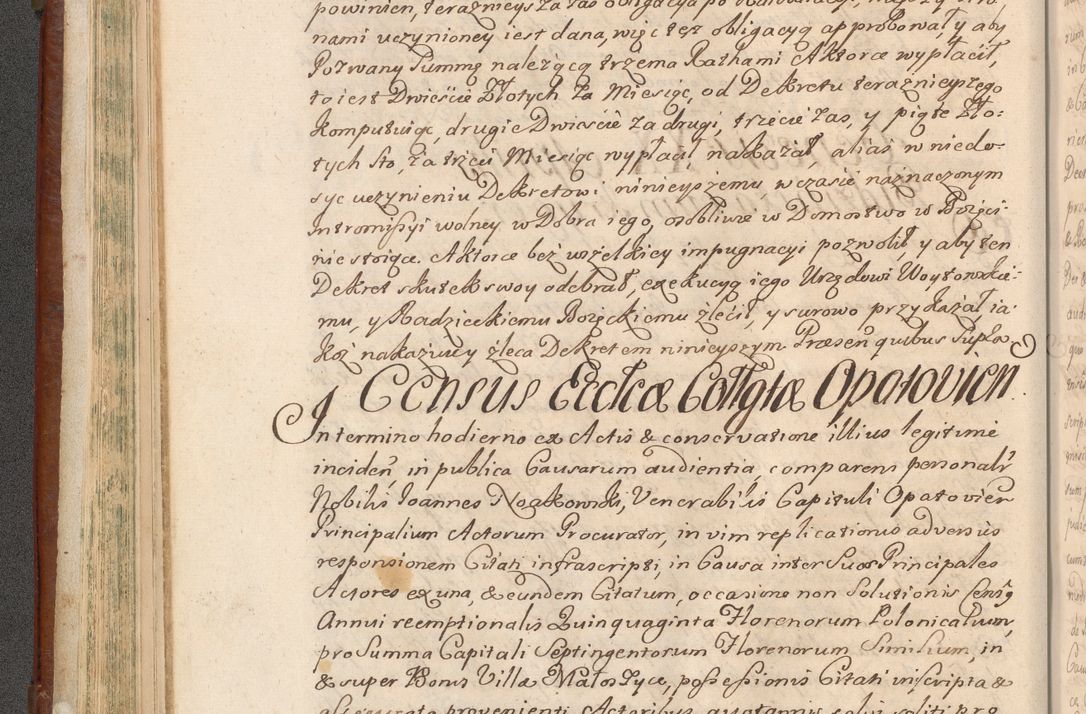 powinien, terazniejsza zas obligacya po
nami uczynioney iest dana, więc tęż obligacyą approbował, y aby
Pozwany Summę należącą trzema Rathami Aktorce wypłacił,
to iest Dwieście Złotych za Miesiąc, od Dekretu teraznieyszego
komputuiąc, drugie Dwieście za drugi, trzecie zas, y piąte Zło-
tych sto, za trzeci Miesiąc wypłacił, nakazał, alias w niedo-
syc uczynieniu Dekretowi ninieyszemu, w czasie naznaczonym
Intromissyi wolney w Dobra iego, osobliwie w Domostwo w Bozęci-
nie stoiące. Aktorce bez wszelkiey impugnacyi pozwolił, y aby ten
Dekret skutek swoy odebrał, exekucyą iego Urzędowi Woytowskie-
mu, y Radzieckiemu Bozęckiemu zlecił, y surowo przykazał, ia-
koz nakazuie y zleca Dekretem ninieyszym Præsen quibus supra
Census Ecclæ Collgtæ Opatovien
In termino hodierno ex Actis & conservatione illius legitime
inciden, in publica Causarum audientia, comparens personalr
Nobilis Ioannes Noakowski, Venerabilis Capituli Opatovien
Principalium Actorum Procurator, in vim replicationis adversus
responsionem Citati infrascripti, in Causa inter Suos Principales
Actores ex una, & eundem Citatum, occasione non Solutionis Census
Annui reemptionalis Quinquaginta Florenorum Polonicalium,
pro Summa Capitali Septingentorum Florenorum Similium, in
& super Bonis Villæ Małoszyce, possessionis Citati inscripta &
provenienti Actoribus quotannis solvi soliti pro